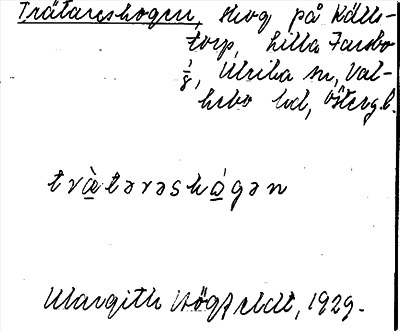 Trätareskogen, skog på Källs-
torp, Lilla Farsbo
1/8, Ulrika sn, Val-
kebo hd, Östergl.
trätərəskógən
Margith Högfeldt, 1929.